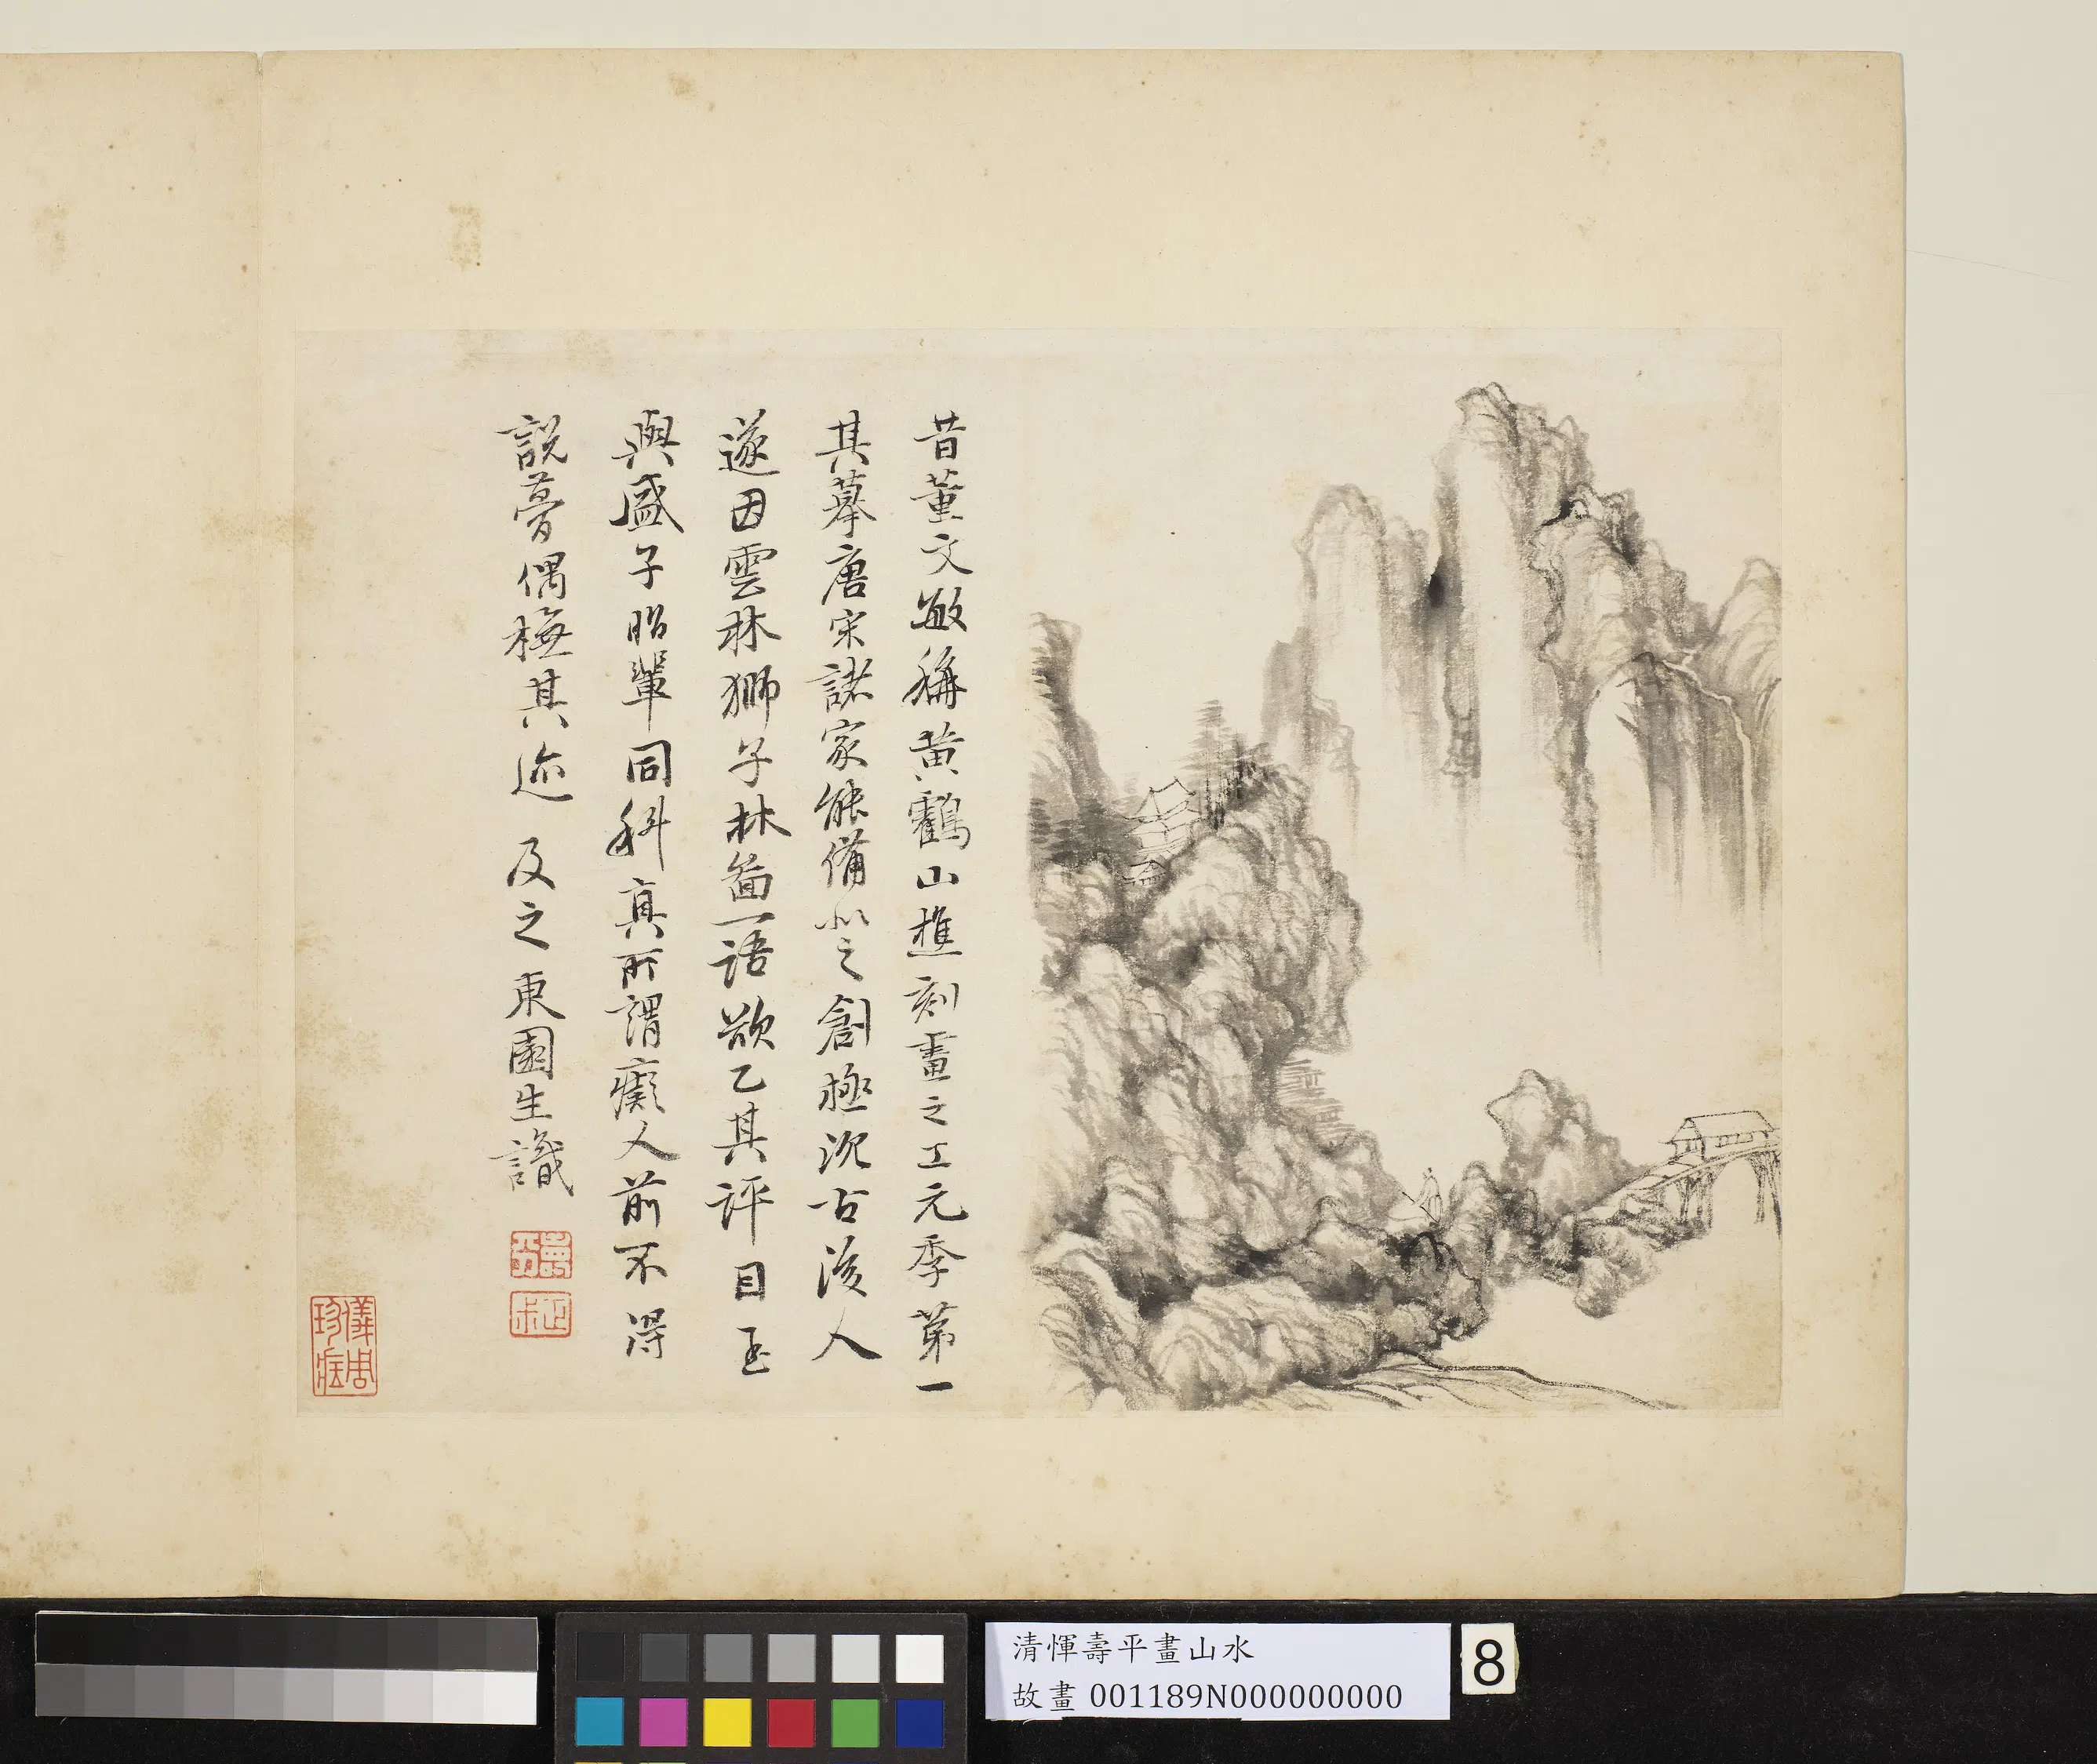 昔董文敏稱黃鶴山樵刻畫之工元季第一
其摹唐宋諸家能備筆之創極沉古後人
遂因雲林獅子林啚一語欲乙其評目至
與盛子昭輩同科真所謂癡人前不得
說夢偶橅其迹 及之 東園生識
壽平
正叔
儀周珍藏
清惲壽平畫山水
故畫 001189N000000000
8